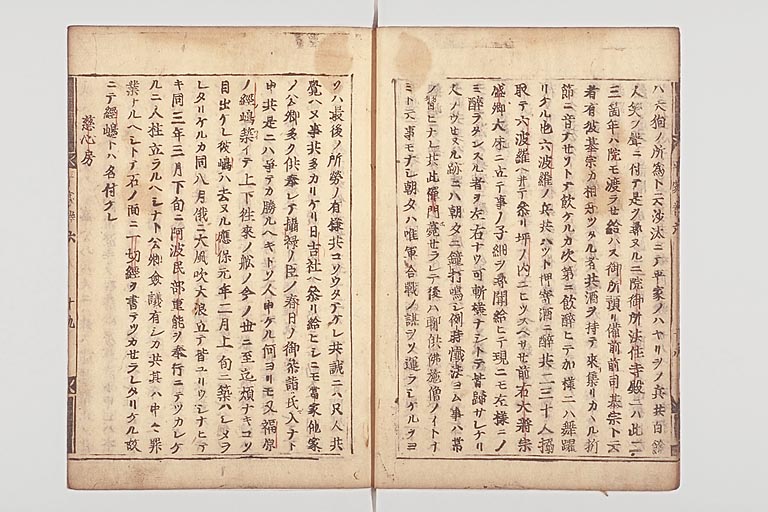 ハ天狗ノ所為ト云沙汰ニテ平家ノハヤリヲノ兵共百餘
人笑ノ聲ニ付テ是ヲ尋ヌルニ院御所法住寺殿ニハ此二
三箇年ハ院モ渡ラセ給ハス御所預リ備前前司基宗ト云
者有彼基宗カ相知タル者共酒ヲ持テ來集リカヽル折
節ニ音ナセソトテ飲ケルカ次第ニ飲醉ヒテ加樣ニハ舞躍
リケル也六波羅ノ兵共ハット押寄酒ニ醉共二三十人搦
取テ六波羅ヘ井テ參リ坪ノ内ニヒツスヘサセ前右大將宗
盛卿大床ニ立テ事ノ子細ヲ尋聞給ヒテ現ニモ左樣ニノ
ミ醉タランスル者ヲ左右ナウ可斬樣ナシトテ皆歸サレケリ
人ノウセヌル跡ニハ朝タニ鐘打鳴シ例時懺法ヨム事ハ常
ノ習ヒナレ共此禪門薨セラレテ後ハ聊供佛施僧ノイトナ
ミト云事モナシ朝タハ唯軍合戰ノ謀ヲソ運ラシケルヲヨ
ソハ最後ノ所勞ノ有樣共コソウタテケレ共誠ニハ只人共
覺ハヌ事共多カリケリ日吉社ヘ參リ給ヒシニモ當家他家
ノ公卿多ク供奉シテ攝禄ノ臣ノ春日ノ御參詣氏入ナト
申共是ニハ爭テカ勝ルヘキトソ人申ケル何ヨリモ又福原
ノ經嶋築イテ上下往來ノ舩ノ今ノ世ニ至迄煩ナキコソ
目出ケレ彼嶋ハ去ヌル應保元年二月上旬ニ築ハシメラ
レタリケルカ同八月俄ニ大風吹大浪立テ皆ユリウシナヒテ
キ同三年三月下旬ニ阿波民部重能ヲ奉行ニテツカレケ
ルニ人柱立ラルヘシナト公卿僉議有シカ共其ハ申々罪
業ナルヘシトテ石ノ面ニ一切經ヲ書テツカセラレタリケル故
ニテ經嶋トハ名付ケレ
慈心房